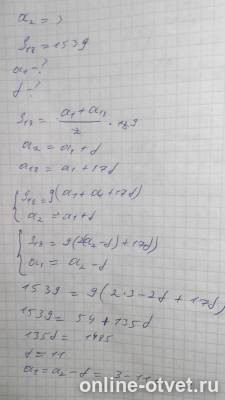 a₂ = 3
S₁₈ = 1539
a₁ - ?
d - ?
S₁₈ = (a₁ + a₁₈)/2 · 18
a₂ = a₁ + d
a₁₈ = a₁ + 17d
{ S₁₈ = 9(a₁ + a₁ + 17d)
a₂ = a₁ + d
{ S₁₈ = 9(2(a₂ - d) + 17d)
a₁ = a₂ - d
1539 = 9(2·3 - 2d + 17d)
1539 = 54 + 135d
135d = 1485
d = 11
a₁ = a₂ - d = 3 - 11
online-otvet.ru